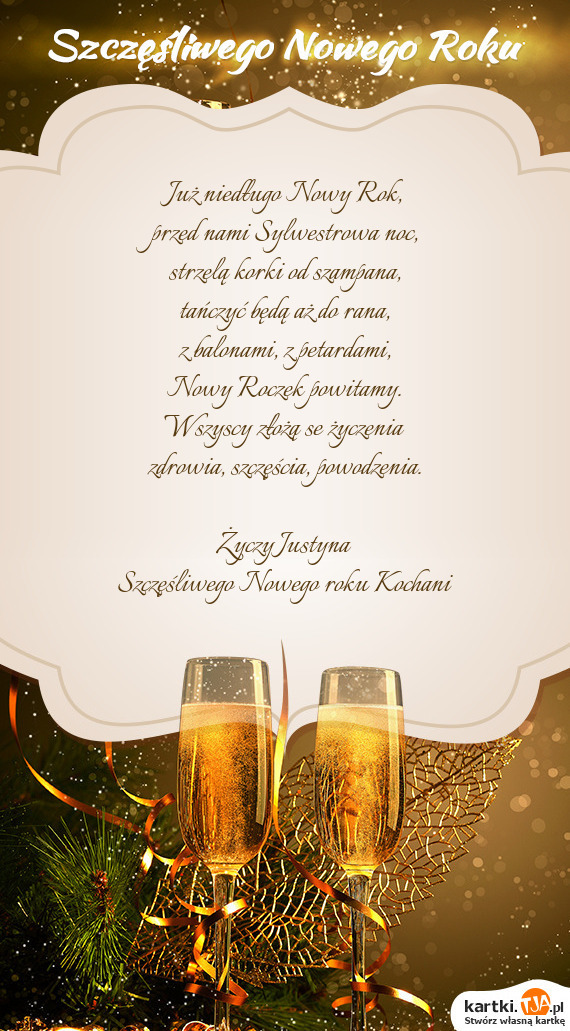 Szczęśliwego Nowego Roku
Już niedługo Nowy Rok,
przed nami Sylwestrowa noc,
strzelą korki od szampana,
tańczyć będą aż do rana,
z balonami, z petardami,
Nowy Roczek powitamy.
Wszyscy złożą se życzenia
zdrowia, szczęścia, powodzenia.
Życzy Justyna
Szczęśliwego Nowego roku Kochani
kartki.TJA.pl
Stwórz własną kartkę